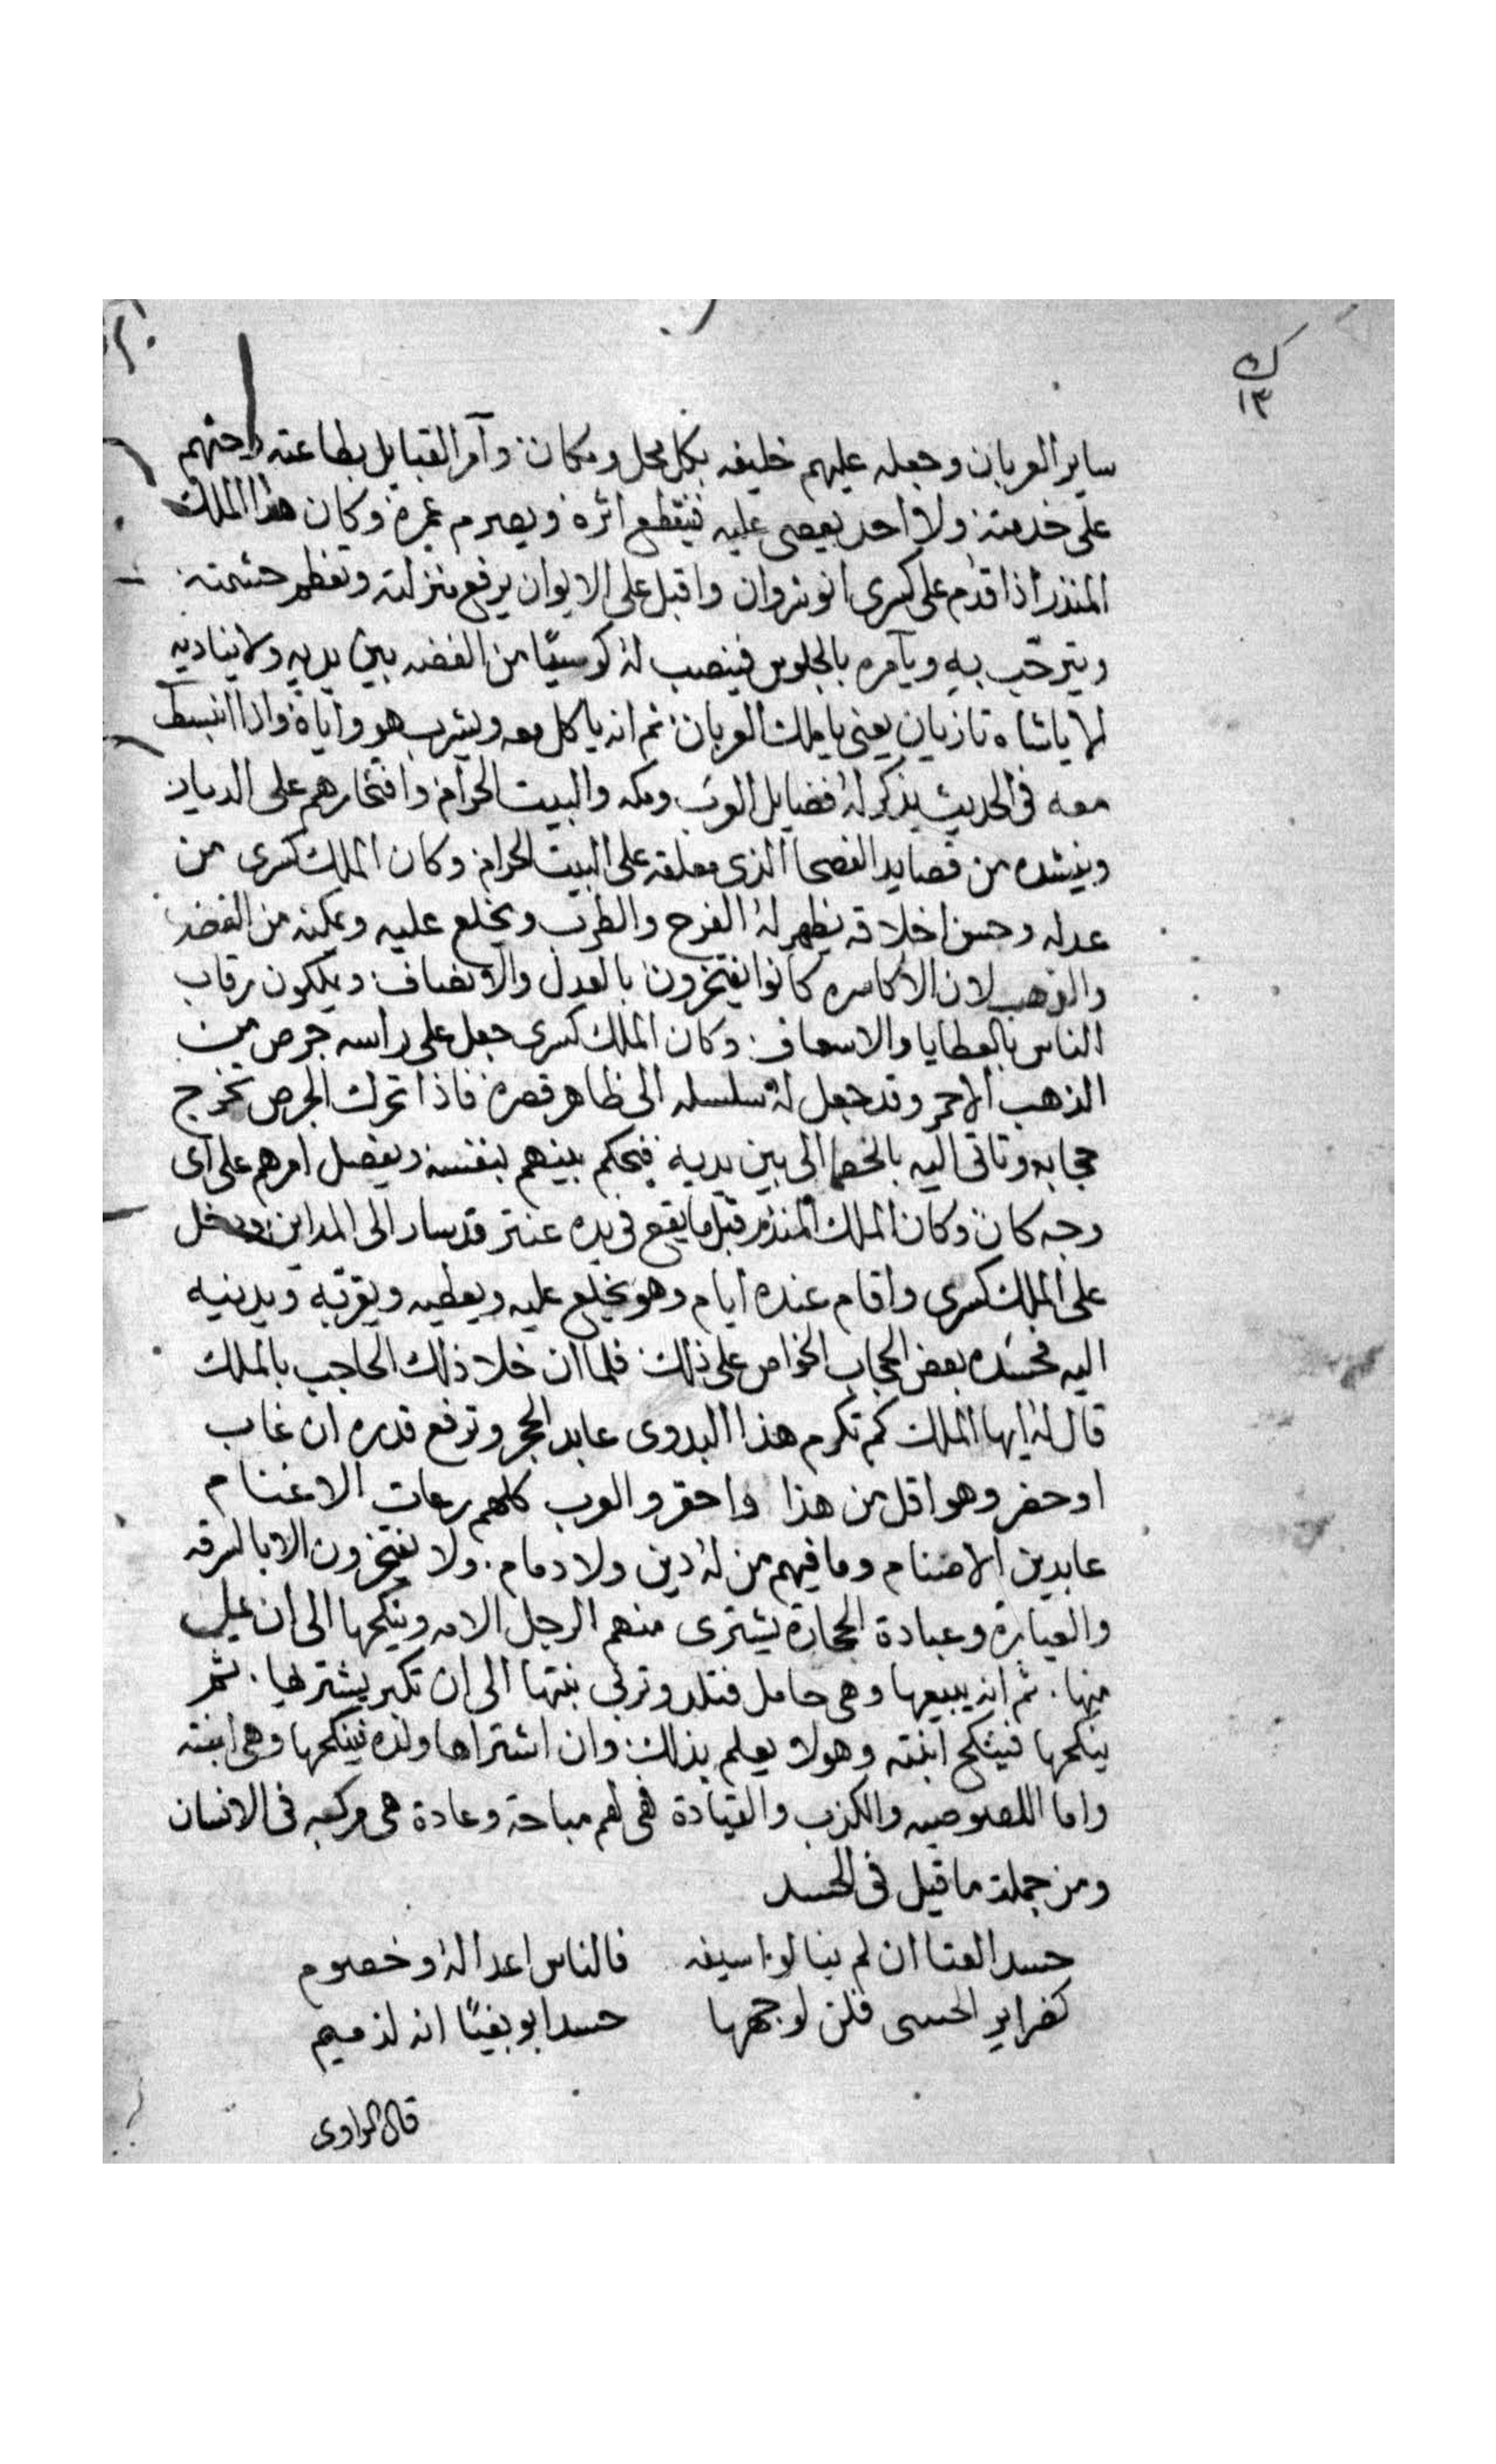 ك
١٣
ساير العربان وجعله عليهم خليفه بكل محل ومكان وآمر القبايل بطاعته وحثهم
على خدمته ولا احد يعصى عليه فينقطع اثره ويصرم عمره وكان هذا الملك
المنذر اذا قدم على كسرى انوشروان واقبل على الايوان يرفع منزلته وتعظم حشمته
ويترحّب به ويآمره بالجلوس فينصب له كرسيًا من الفضه بين يديه ولا يناديه
الا ياشاه تازيان يعنى ياملك العربان ثم انه ياكل معه ويشرب هو واياه واذا انبسط
معه فى الحديث يذكر له فضايل العرب ومكه والبيت الحرام وافتخارهم على الديار
وينشده من قصايد الفصحا الذى معلقه على البيت الحرام وكان الملك كسرى من
عدله وحسن اخلاقه يظهر له الفرح والطرب ويخلع عليه ويمكنه من الفضه
والذهب لان الاكاسره كانوا يفتخرون بالعدل والانصاف ويملكون رقاب
الناس بالعطايا والاسعاف وكان الملك كسرى جعل على راسه جرص من
الذهب الاحمر وقد جعل له سلسله الى ظاهر قصره فاذا تحرك الجرص تخرج
حجابه وتاتى اليه بالخصما الى بين يديه فيحكم بينهم بنفسه ويفصل امرهم على اى
وجه كان وكان الملك المنذر قبل ما يقع فى يده عنتر قد سار الى المداين ودخل
على الملك كسرى واقام عنده ايام وهو يخلع عليه ويعطيه ويقربه ويدنيه
اليه فحسده بعض الحجاب الخواص على ذلك فلما ان خلا ذلك الحاجب بالملك
قال له ايها الملك كم تكرم هذا البدوى عابد الحجر وترفع قدره ان غاب
او حضر وهو اقل من هذا واحقر والعرب كلهم رعات الاغنام
عابدين الاصنام وما فيهم من له دين ولا دمام ولا يفتخرون الا بالسرقه
والعياره وعبادة الحجارة يشترى منهم الرجل الامه وينكحها الى ان يمل
منها ثم انه يبيعها وهى حامل فتلد وتربى بنتها الى ان تكبر يشتريها ثم
ينكحها فينكح ابنته وهو لا يعلم بذلك وان اشتراها ولده فينكحها وهى ابنته
واما اللصوصيه والكذب والقيادة فهى لهم مباحة وعادة هى مركبه فى الانسان
ومن جملة ما قيل فى الحسد
حسد الفتا ان لم ينالوا سيفه فالناس اعدا له وخصوم
كضراير الحسى قلن لوجهها حسدا وبغيًا انه لذميم
قال الراوى